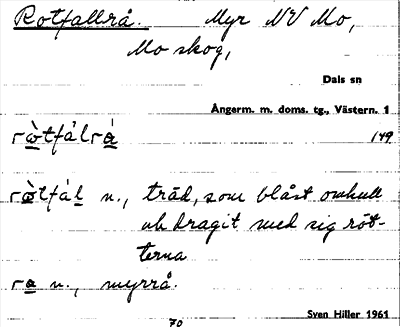 Rotfallrå. Myr NV Mo,
Mo skog,
Dals sn
Ångerm. m. doms. tg., Västern. 1
ròtfálrá 149
ròtfál n., träd, som blåst omkull
och dragit med sig röt-
terna
ra n., myrrå.
Sven Hiller 1961
70